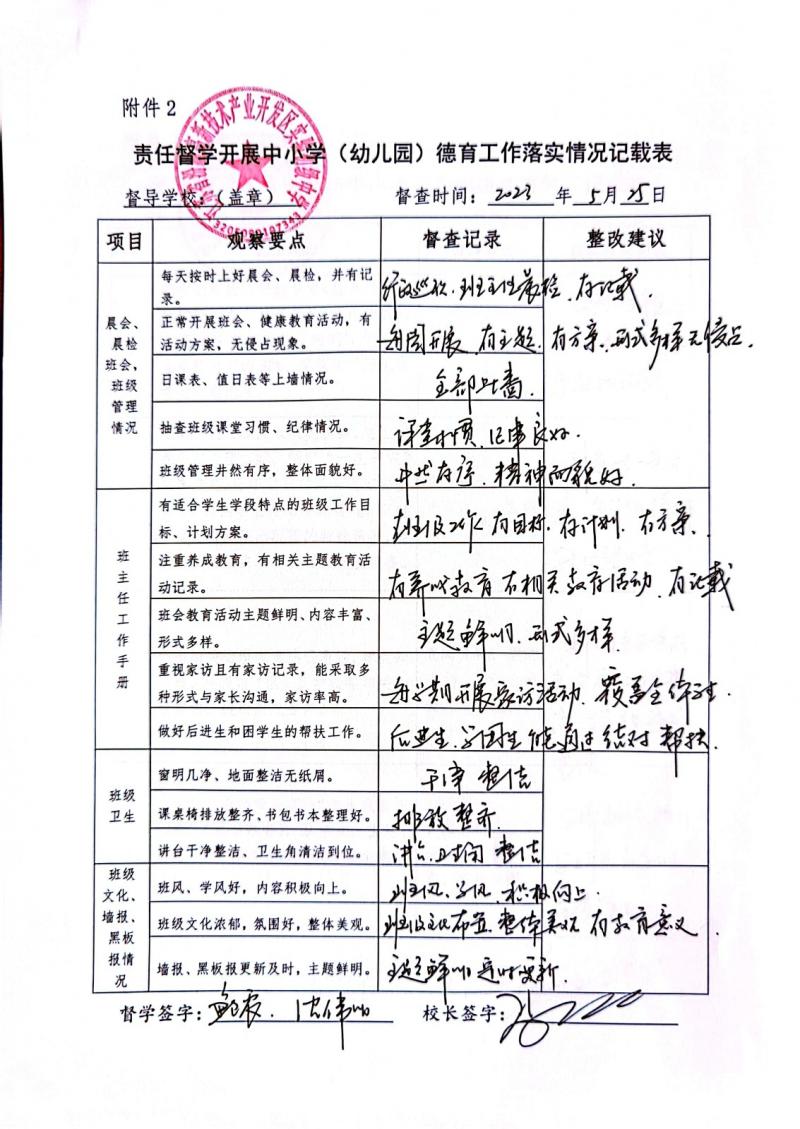 附件2
责任督学开展中小学（幼儿园）德育工作落实情况记载表
督导学校（盖章） 督查时间：2023 年 5 月 25 日
项目 观察要点 督查记录 整改建议
晨会、
晨检
班会，
班级
管理
情况
每天按时上好晨会、晨检，并有记
录。
行政巡视，班主任晨检，有记载．
正常开展班会、健康教育活动，有
活动方案，无侵占现象。
每周开展，有主题，有方案，形式多样无侵占
日课表、值日表等上墙情况。
全部上墙
抽查班级课堂习惯、纪律情况。
课堂习惯，纪律良好．
班级管理井然有序，整体面貌好。
井然有序，精神面貌好．
班
主
任
工
作
手
册
有适合学生学段特点的班级工作目
标、计划方案。
班级工作 有目标，有计划，有方案．
注重养成教育，有相关主题教育活
动记录。
有养成教育 有相关教育活动，有记载
班会教育活动主题鲜明、内容丰富、
形式多样。
主题鲜明，形式多样
重视家访且有家访记录，能采取多
种形式与家长沟通，家访率高。
每学期开展家访活动，覆盖全体学生．
做好后进生和困学生的帮扶工作。
后进生，学困生能通过结对帮扶．
班级
卫生
窗明几净、地面整洁无纸屑。
干净 整洁
课桌椅排放整齐、书包书本整理好。
排放整齐．
讲台干净整洁、卫生角清洁到位。
讲台，卫生间 整洁
班级
文化、
墙报、
黑板
报情
况
班风、学风好，内容积极向上。
班风、学风，积极向上
班级文化浓郁，氛围好，整体美观。
班级文化布置，整体美观 有教育意义．
墙报、黑板报更新及时，主题鲜明。
主题鲜明 定时更新．
督学签字： 校长签字：